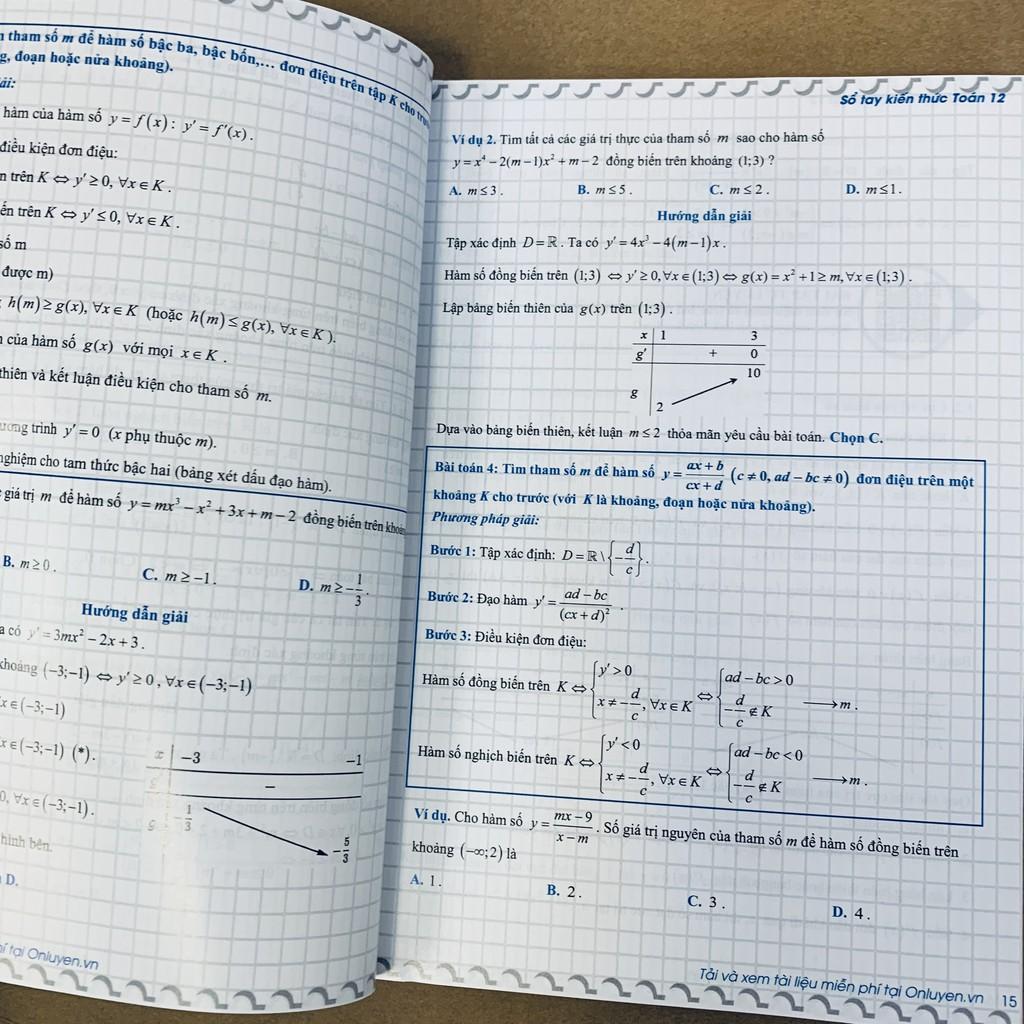 tham số m để hàm số bậc ba, bậc bốn,... đơn điệu trên tập K cho
đoạn hoặc nửa khoảng).
hàm của hàm số y = f(x): y' = f'(x).
điều kiện đơn điệu:
trên K ⇔ y' ≥ 0, ∀x ∈ K.
K ⇔ y' ≤ 0, ∀x ∈ K.
số m
được m)
h(m) ≥ g(x), ∀x ∈ K (hoặc h(m) ≤ g(x), ∀x ∈ K).
của hàm số g(x) với mọi x ∈ K.
thiên và kết luận điều kiện cho tham số m.
trình y' = 0 (x phụ thuộc m).
nghiệm cho tam thức bậc hai (bảng xét dấu đạo hàm).
giá trị m để hàm số y = mx³ − x² + 3x + m − 2 đồng biến trên khoảng
B. m ≥ 0. C. m ≥ −1. D. m ≥ −1/3.
Hướng dẫn giải
có y' = 3mx² − 2x + 3.
khoảng (−3;−1) ⇔ y' ≥ 0, ∀x ∈ (−3;−1)
x ∈ (−3;−1)
x ∈ (−3;−1) (*).
x −3 −1
−
−1/3
−5/3
0, ∀x ∈ (−3;−1).
hình bên.
D.
tại Onluyen.vn
Sổ tay kiến thức Toán 12
Ví dụ 2. Tìm tất cả các giá trị thực của tham số m sao cho hàm số
y = x⁴ − 2(m−1)x² + m − 2 đồng biến trên khoảng (1;3) ?
A. m ≤ 3. B. m ≤ 5. C. m ≤ 2. D. m ≤ 1.
Hướng dẫn giải
Tập xác định D = ℝ. Ta có y' = 4x³ − 4(m−1)x.
Hàm số đồng biến trên (1;3) ⇔ y' ≥ 0, ∀x ∈ (1;3) ⇔ g(x) = x² + 1 ≥ m, ∀x ∈ (1;3).
Lập bảng biến thiên của g(x) trên (1;3).
x 1 3
g' + 0
10
g
2
Dựa vào bảng biến thiên, kết luận m ≤ 2 thỏa mãn yêu cầu bài toán. Chọn C.
Bài toán 4: Tìm tham số m để hàm số y = (ax+b)/(cx+d) (c ≠ 0, ad − bc ≠ 0) đơn điệu trên một
khoảng K cho trước (với K là khoảng, đoạn hoặc nửa khoảng).
Phương pháp giải:
Bước 1: Tập xác định: D = ℝ \ {−d/c}.
Bước 2: Đạo hàm y' = (ad − bc)/(cx+d)².
Bước 3: Điều kiện đơn điệu:
Hàm số đồng biến trên K ⇔ {y' > 0; x ≠ −d/c, ∀x ∈ K ⇔ {ad − bc > 0; −d/c ∉ K ⟶ m.
Hàm số nghịch biến trên K ⇔ {y' < 0; x ≠ −d/c, ∀x ∈ K ⇔ {ad − bc < 0; −d/c ∉ K ⟶ m.
Ví dụ. Cho hàm số y = (mx−9)/(x−m). Số giá trị nguyên của tham số m để hàm số đồng biến trên
khoảng (−∞;2) là
A. 1. B. 2. C. 3. D. 4.
Tải và xem tài liệu miễn phí tại Onluyen.vn 15